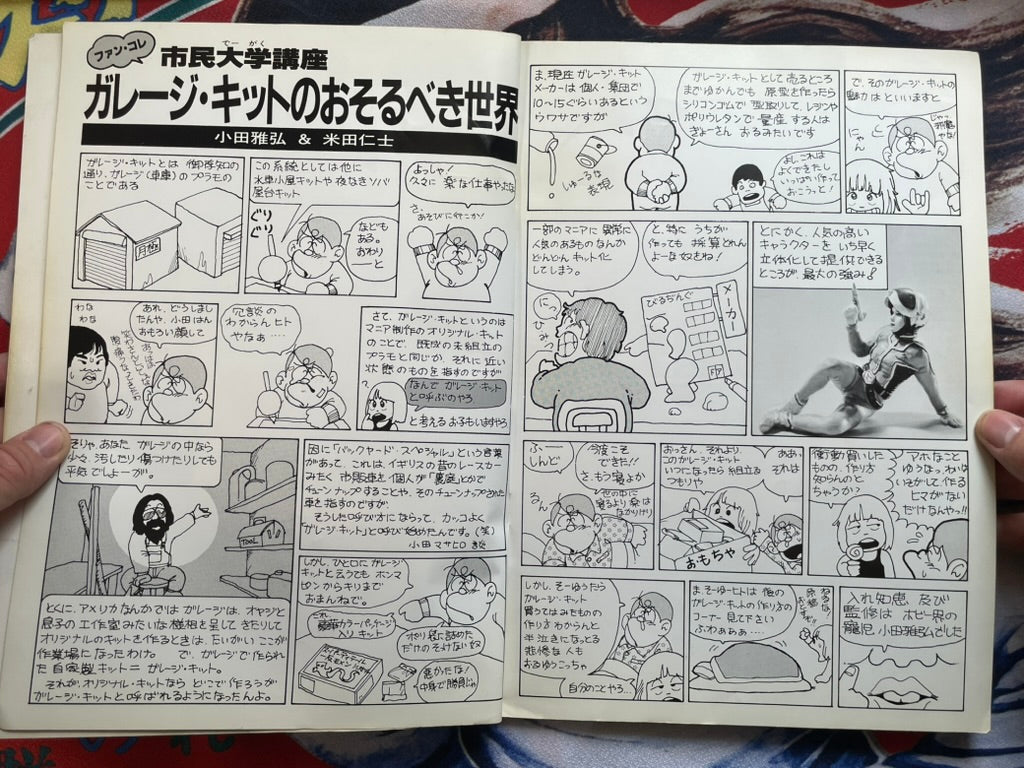 ファン・コレ
でーがく
市民大学講座
ガレージ・キットのおそるべき世界
小田雅弘 & 米田仁士
ガレージ・キットとは 御存知の
通り、ガレージ(車庫)のプラモの
ことである
月極
この系統としては他に
水車小屋キットや 夜なきソバ
屋台キット
ぐり
ぐり
なども
ある。
おわり
ーと
よっしゃ!
久々に 楽な仕事やったな
さ、
あそびに行こか!
わな
わな
あれ、どうしまし
たんや、小田はん
おもろい顔して
冗談の
わからんヒト
やなぁ・・・・
さて、ガレージ・キットというのは
マニア制作のオリジナル・キット
のことで、既成の未組立の
プラモと同じか、それに近い
状態のものを指すのですが
なんで ガレージ キット
と呼ぶのやろ
と考えるお子もいますやろ
そりゃ、あなた、ガレージの中なら
少々、汚したり傷つけたりしても
平気でしょーが。
TOOL
とくに、アメリカなんかでは ガレージは、オヤジと
息子の工作室みたいな様相を呈してきたりして
オリジナルのキットを作るときは、たいがい ここが
作業場になったわけ。 で、ガレージで作られ
た自家製キット=ガレージ・キット。
それが、オリジナル・キットなら どこで作ろうが
ガレージ・キットと呼ばれるようになったんよ。
因に「バックヤード・スペシャル」という言葉
があって、これは、イギリスの昔のレースカー
みたく 市販車を個人が「裏庭」とかで
チューンナップすることや、そのチューンナップされた
車を指すのですが
そうした呼び方にならって、カッコよく
「ガレージ・キット」と呼び始めたんです。(笑)
小田マサヒロ 談
しかし、ひとくちに ガレージ
キットと言うても ホンマ
ピンからキリまで
おまんねで。
豪華カラーパッケージ
入り キット
ポリ袋に詰めた
だけのそっけない奴
悪かったな!
中身で勝負じゃ
ま、現在 ガレージ・キット
メーカーは 個人・集団で
10〜15ぐらいあるという
ウワサですが
しゅーるな
表現
ガレージ・キットとして売るところ
までゆかんでも 原型を作ったら
シリコンゴムで型取りして、レジンや
ポリウレタンで 量産する人は
ぎょーさん おるみたいです
よし、これは
よくできたし
いっぱい作って
おこうっと!
で、そのガレージ・キットの
魅力は といいますと
にゅん
と
じゃっ、
邪魔
やな!
一部のマニアに異常に
人気のあるものなんか
どんどん キット化
してしまう。
と、特に うちが
作っても 採算とれん
よーな奴をね!
にっ
ひひっ
びるぢんぐ
メーカー
とにかく、人気の高い
キャラクターを いち早く
立体化して提供できる
ところが、最大の強み!
ふー
しんど
今度こそ
できた!!
さ、もう寝よか
世の中に
寝るより楽は
なかりけり
るん
おっさん、それより
このガレージ・キット
いつになったら 組立る
つもりや
ああっ
それは
おもちゃ
衝動買いした
ものの、作り方
知らんのと
ちゃうか?
アホなこと
ゆうなっ、わいは
いそがして作る
ヒマがない
だけなんやっ!!
しかし、そーゆたう
ガレージ・キット
買うてはみたものの
作り方わからんと
半泣きになっとる
悲惨な人も
おるゆうこっちゃ
自分のことやろ・・
ま、そゆヒトは 他の
ガレージ・キットの作り方の
コーナー 見て下さい
ふわぁぁぁ・・・・
入れ知恵、及び
監修は ホビー界の
寵児、小田雅弘でした